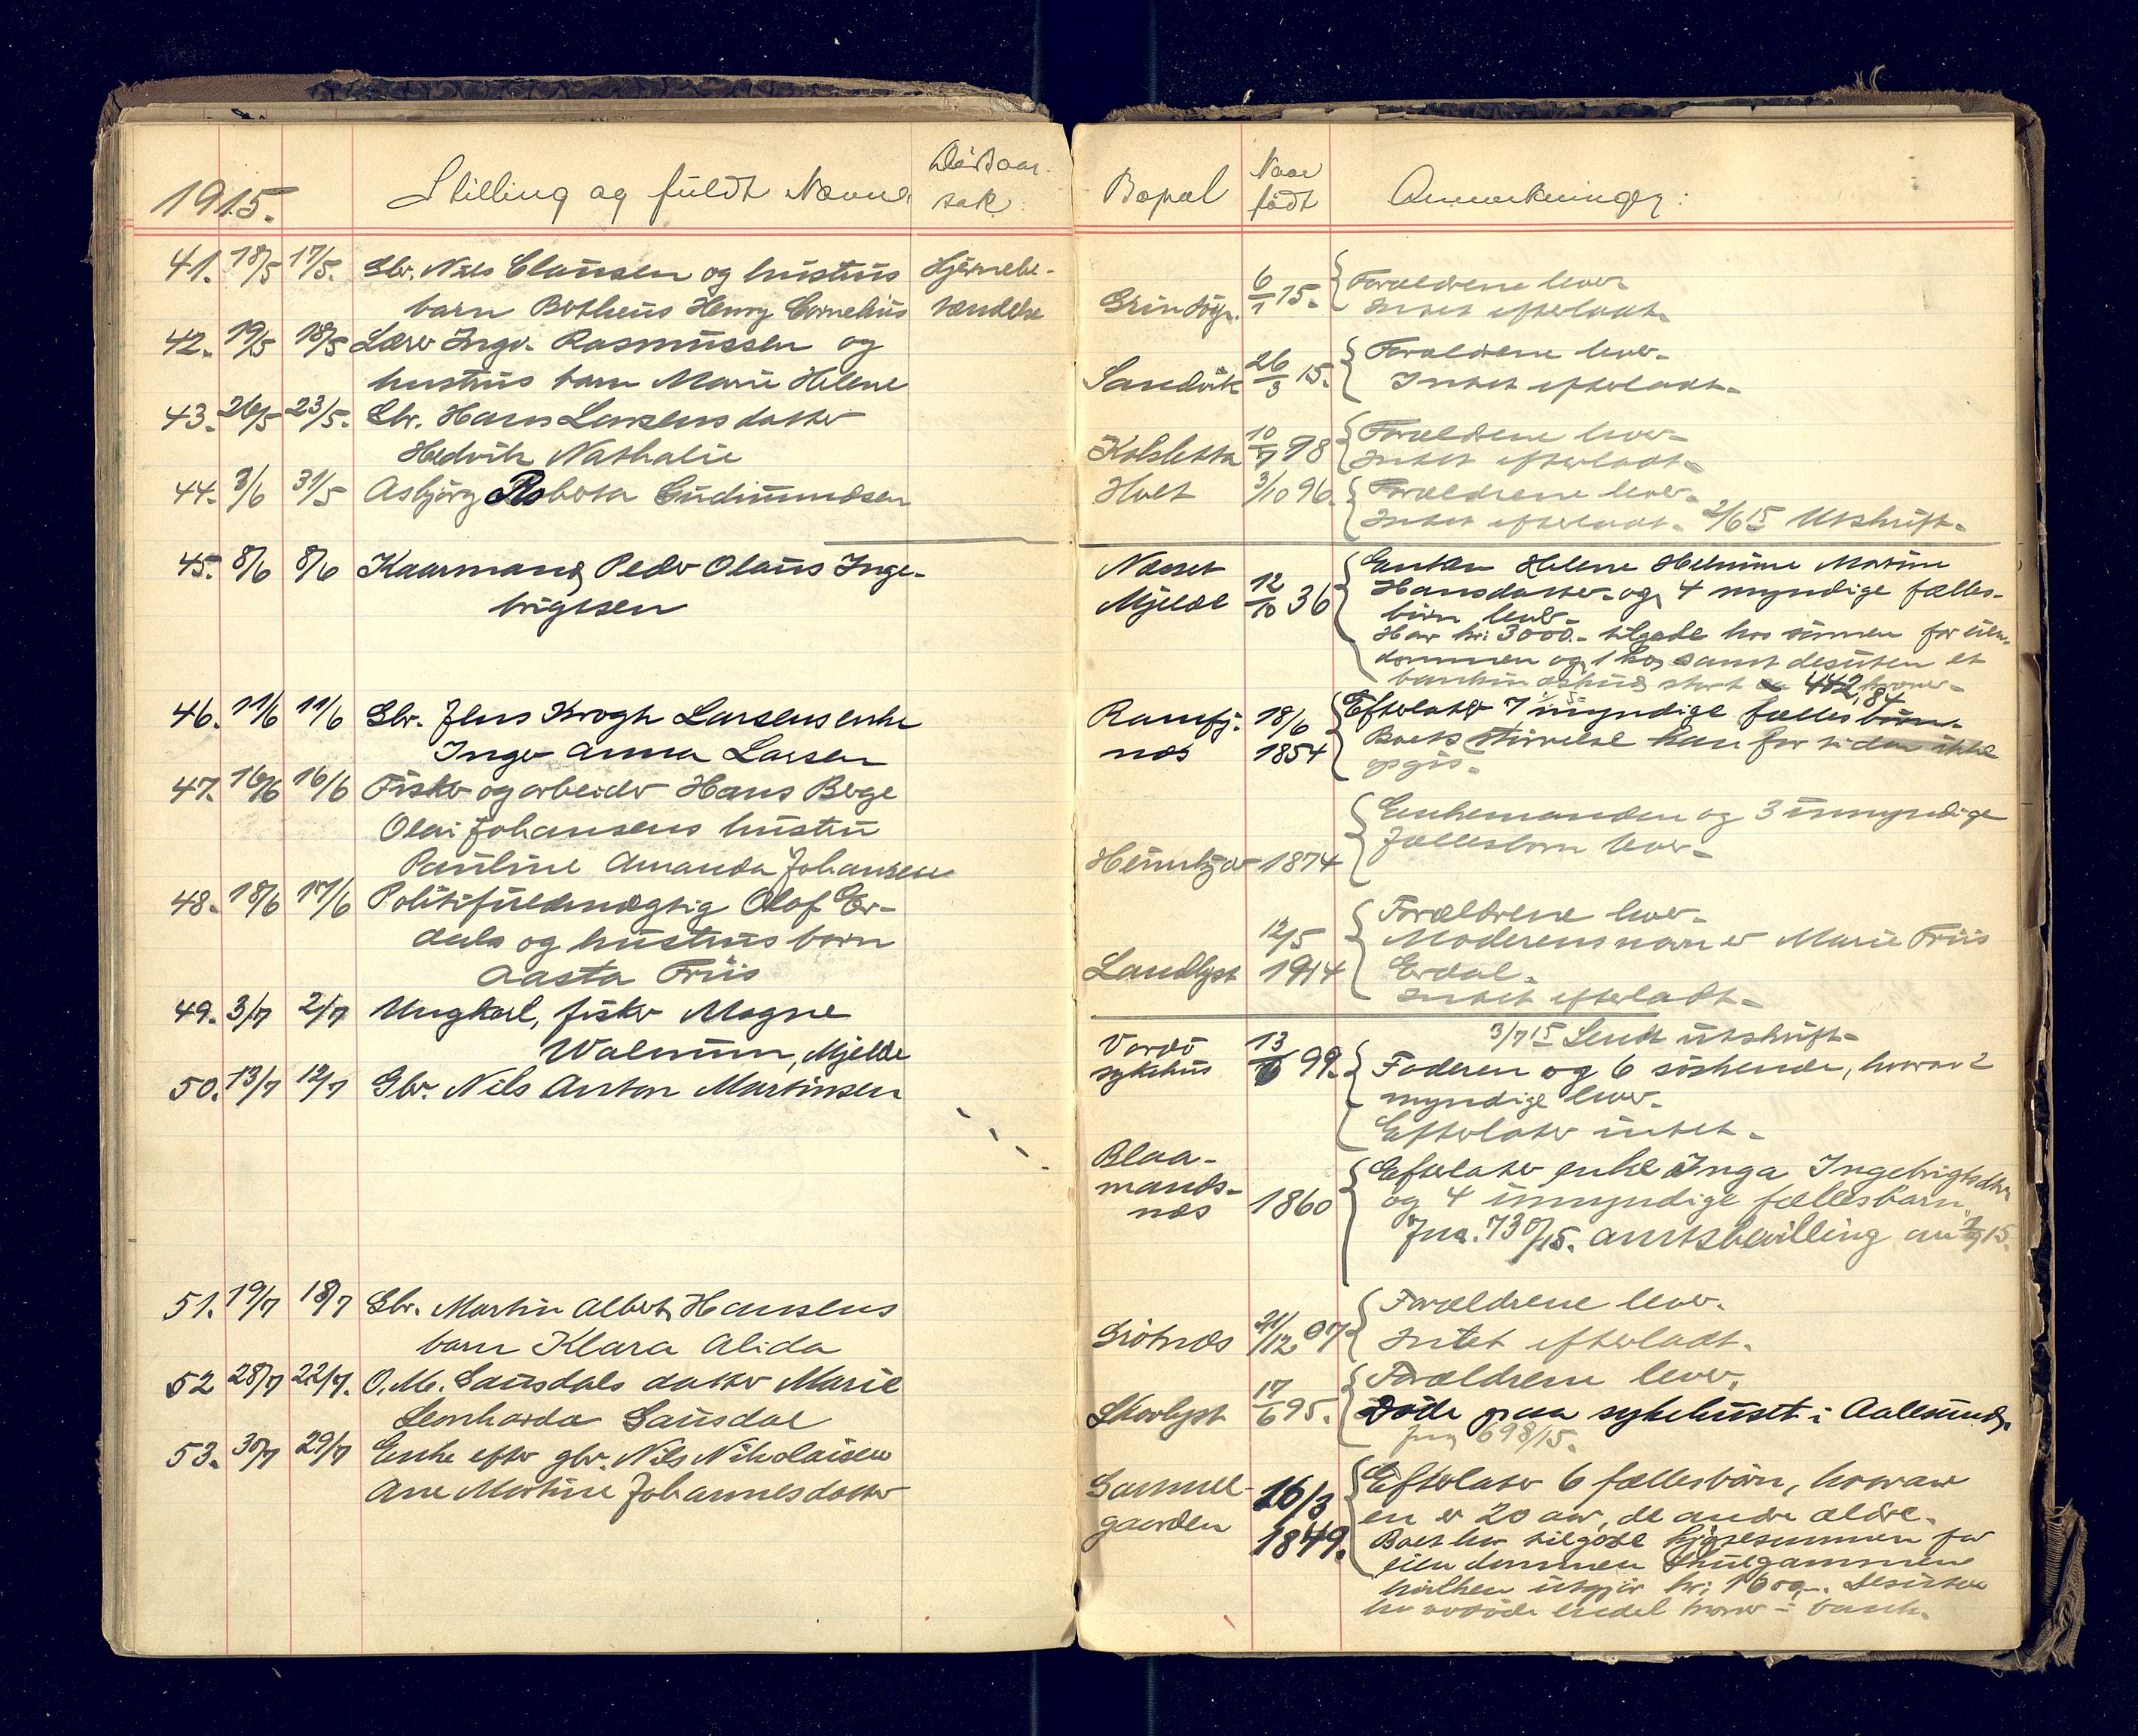 1915.
Stilling og fuldt Navn
Dödsaar-
sak:
41. 18/5 17/5. Gbr. Nils Clausen og hustrus
Hjernebe-
barn Botheus Henry Cornelius
tændelse
42. 19/5 18/5 Lærer Ingv. Rasmussen og
hustrus barn Marie Helene
43. 26/5 23/5. Gbr. Hans Larsens datter
Hedvik Nathalie
44. 3/6 31/5 Asbjörg Roberta Gudmundsen
45. 8/6 8/6 Kaarmand Peder Olaus Inge-
brigtsen
46. 11/6 11/6 Gbr. Jens Krogh Larsens enke
Inger Anna Larsen
47. 16/6 16/6 Fisker og arbeider Hans Berge
Olai Johansens hustru
Pauline Amanda Johansen
48. 18/6 17/6 Politifuldmægtig Olaf Er-
dals og hustrus barn
Aasta Friis
49. 3/7 2/7 Ungkarl, fisker Magne
Walnum, Mjelde
50. 13/7 12/7 Gbr. Nils Anton Martinsen
51. 19/7 18/7 Gbr. Martin Albert Hansens
barn Klara Alida
52 28/7 22/7. O. M. Sausdals datter Marie
Leonharda Sausdal
53. 30/7 29/7 Enke efter gbr. Nils Nikolaisen
Ane Martine Johannesdatter
Bopæl
Naar
född
Anmerkninger:
6/1 15. Forældrene lever
Grindögn. Intet efterladt.
Forældrene lever.
Sandvik 26/3 15. Intet efterladt.
10/7 98 Forældrene lever.
Kobsletta Intet efterladt.
Holt 3/10 96. Forældrene lever.
Intet efterladt. 2/6 15 Utskrift.
Næset Enken Helene Helmine Marine
Mjelde 12/10 36 Hansdatter og 4 myndige fælles-
börn lever.
Har kr: 3000.- tilgode hos sönnen for eien-
dommen og 1 ko, samt desuten et
bankindskud stort 442,84 kroner.
Ramfj. 18/6 Efterlater 7 myndige fællesbörn.
næs 1854 Boets störrelse kan for tiden ikke
opgis.
Enkemanden og 3 umyndige
1874 fællesbarn lever.
12/5 Forældrene lever.
Moderens navn er Marie Friis
Landlyst 1914 Erdal.
Intet efterladt.
3/7 15 Sendt utskrift.
Vardö 13/6 99. Faderen og 6 söskende, hvorav 2
sykehus myndige lever.
Efterlater intet.
Blaa- Efterlater enke Inga Ingebrigtsdtr
mands- og 4 umyndige fællesbarn.
næs 1860 Jnr. 730/15. Amtsbevilling av 7/9 15.
Forældrene lever.
Grötnæs 21/12 07 Intet efterladt.
17/6 95. Forældrene lever.
Skovlyst Döde paa sykehuset i Aalesund.
jnr 698/15.
Gammel- 16/3 Efterlater 6 fællesbörn, hvorav
gaarden en er 20 aar, de andre ældre.
1849. Boet har tilgode kjöpesummen for
eiendommen Skulgammen
hvilken utgjör kr: 1600,-. Desuten
har avdöde endel kroner i bank.